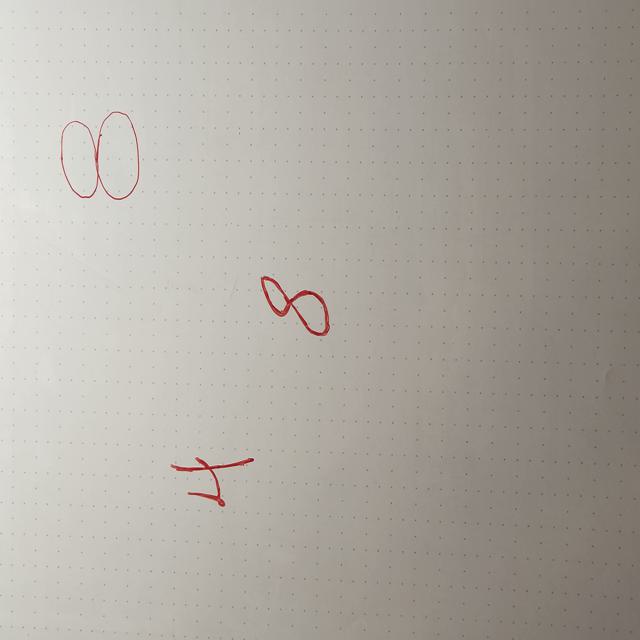 8
4
8